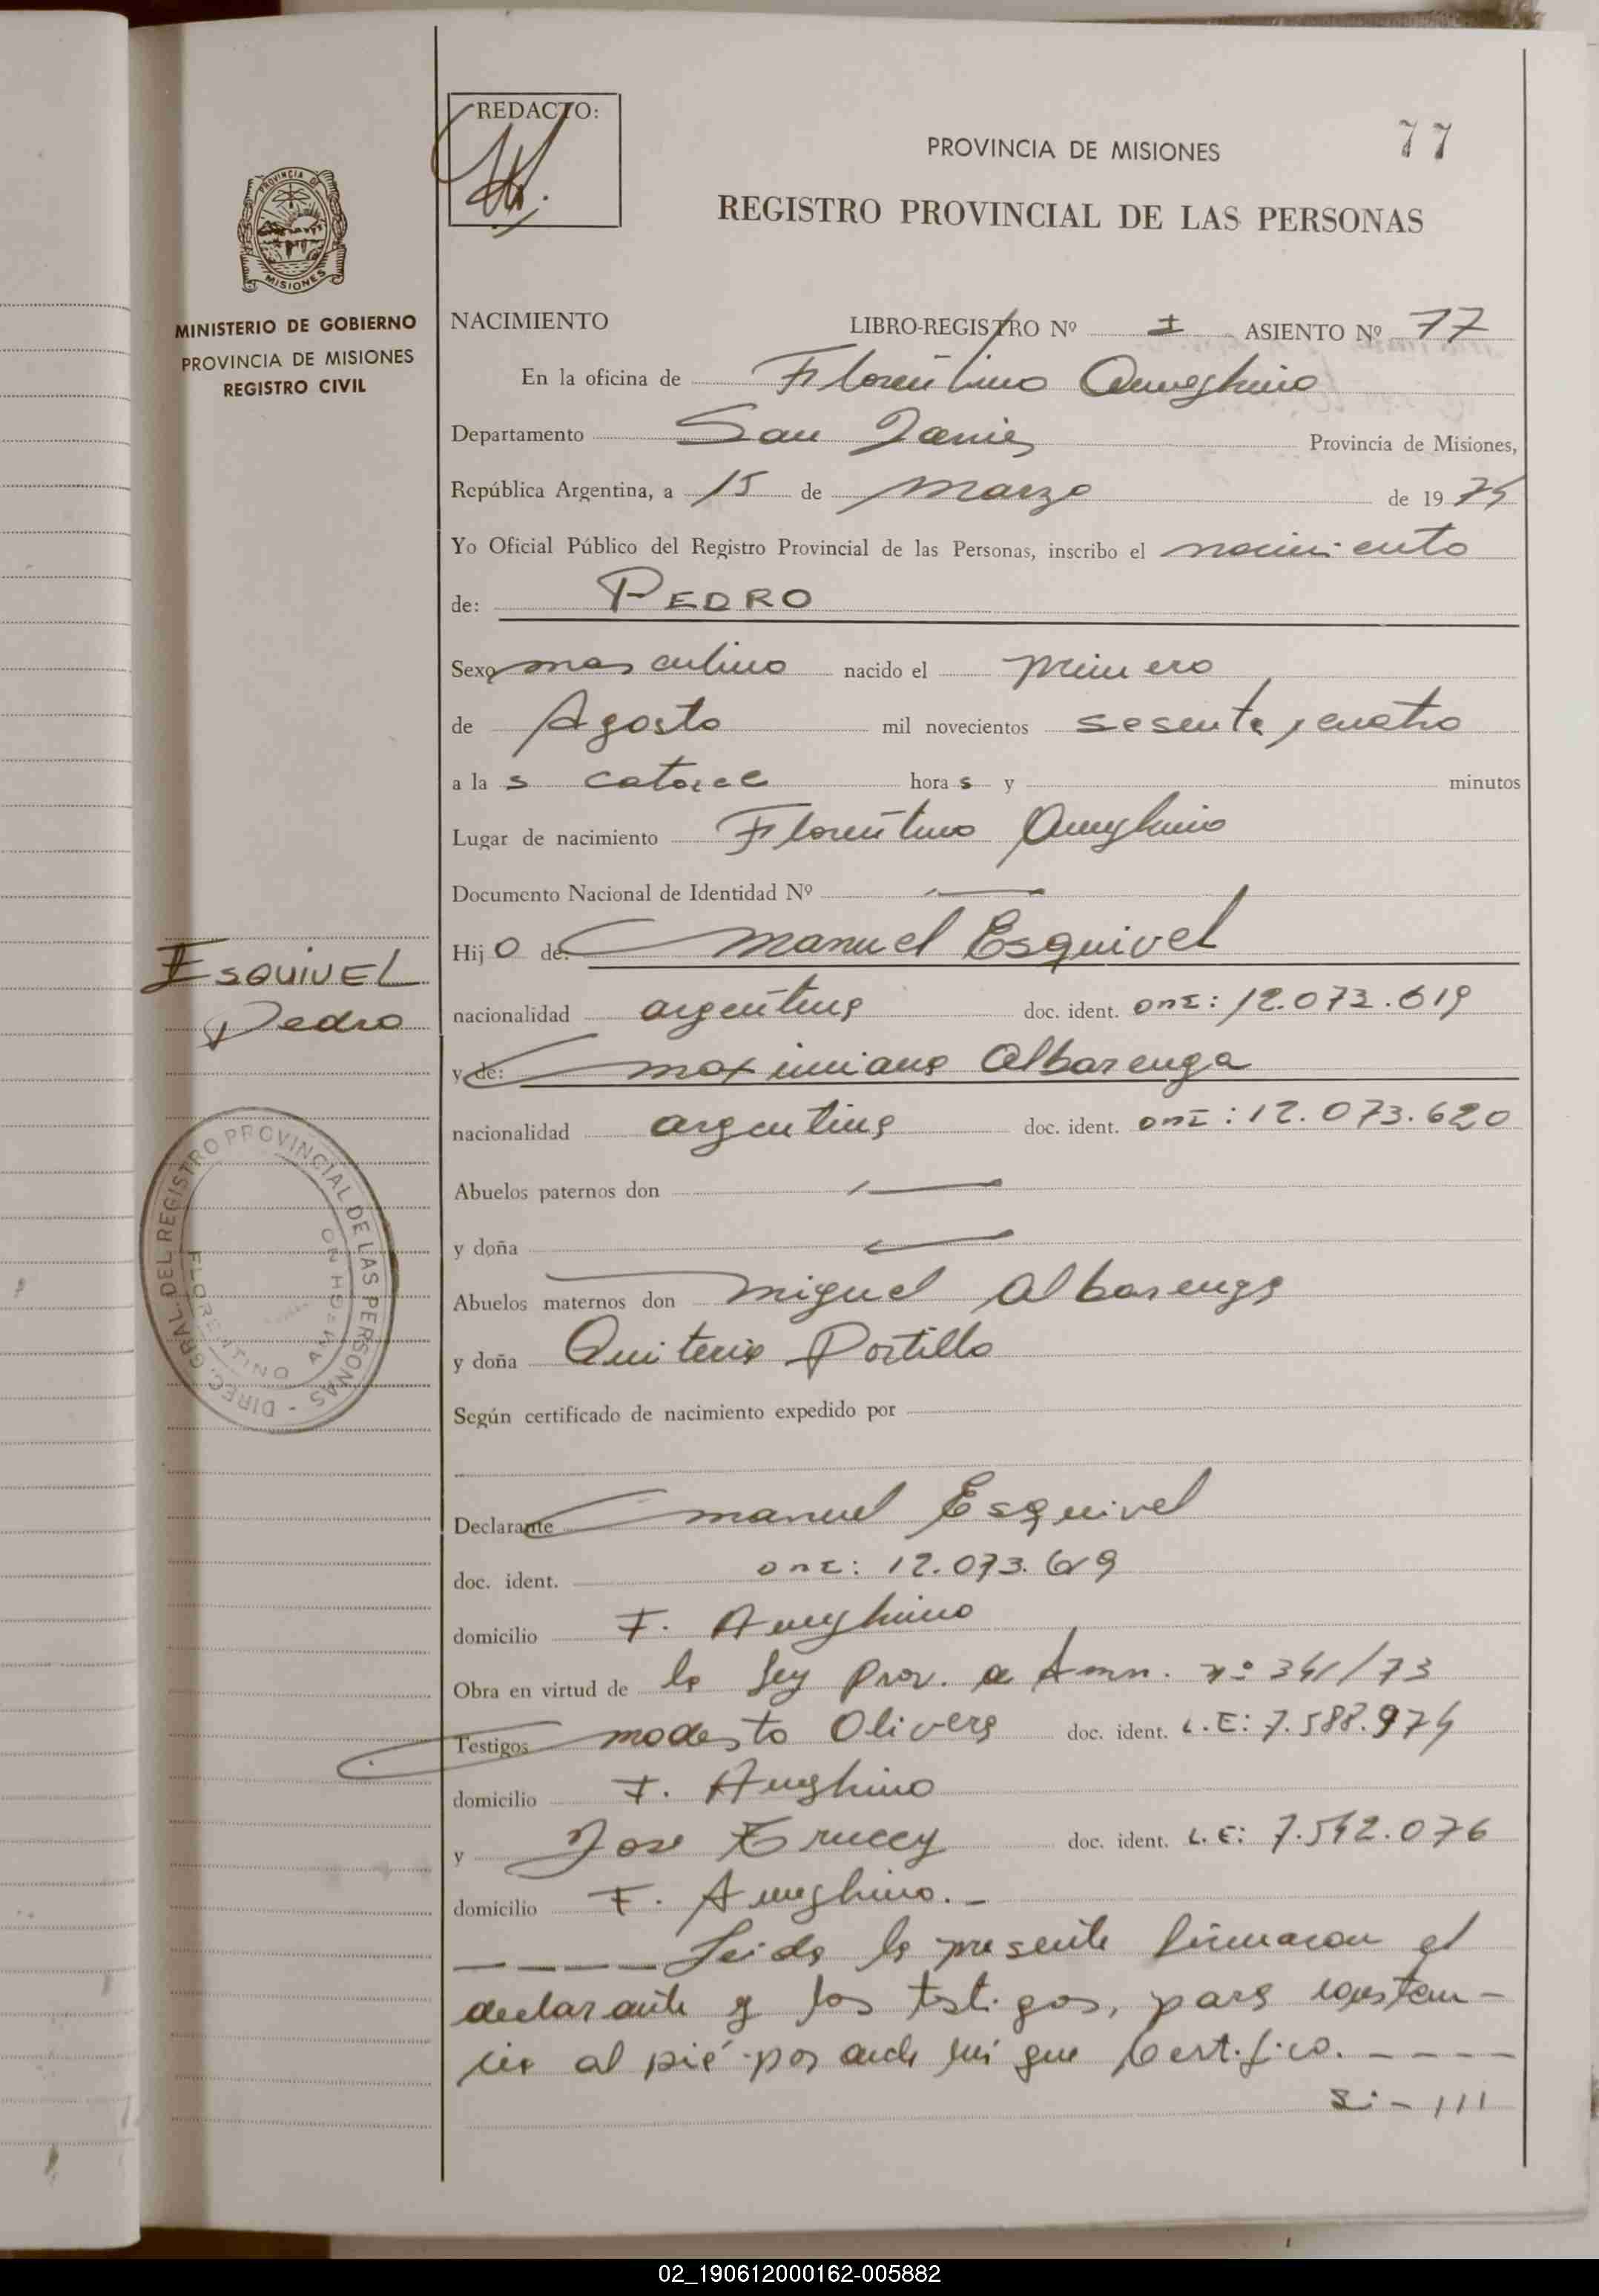 REDACTO:
77
PROVINCIA DE MISIONES
REGISTRO PROVINCIAL DE LAS PERSONAS
PROVINCIA DE
MISIONES
MINISTERIO DE GOBIERNO
PROVINCIA DE MISIONES
REGISTRO CIVIL
NACIMIENTO LIBRO-REGISTRO Nº I ASIENTO Nº 77
En la oficina de Florentino Ameghino
Departamento San Javier Provincia de Misiones,
República Argentina, a 15 de marzo de 1974
Yo Oficial Público del Registro Provincial de las Personas, inscribo el nacimiento
de: PEDRO
Sexo masculino nacido el primero
de Agosto mil novecientos sesenta y cuatro
a las catorce horas y minutos
Lugar de nacimiento Florentino Ameghino
Documento Nacional de Identidad Nº —
Hijo de: Manuel Esquivel
ESQUIVEL
Pedro
nacionalidad argentina doc. ident. DNI: 12.073.619
y de: Maximiana Albarenga
nacionalidad argentina doc. ident. DNI: 12.073.620
Abuelos paternos don —
y doña —
Abuelos maternos don Miguel Albarenga
y doña Quiteria Portillo
DIREC. GRAL. DEL REGISTRO PROVINCIAL DE LAS PERSONAS -
FLORENTINO AMEGHINO
Según certificado de nacimiento expedido por
Declarante Manuel Esquivel
doc. ident. DNI: 12.073.619
domicilio F. Ameghino
Obra en virtud de la Ley Prov. de Amn. nº 341/73
Testigos Modesto Olivera doc. ident. L.E: 7.588.974
domicilio F. Ameghino
y Jose doc. ident. L.E: 7.542.076
domicilio F. Ameghino.-
----Leida la presente firmaron el
declarante y los testigos, para constan-
cia al pié por ante mi que Certifico.----
Si-///
02_190612000162-005882